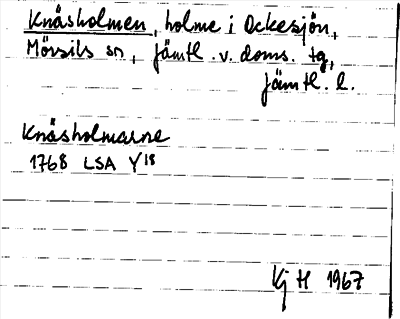 Knäsholmen, holme i Ockesjön,
Mörsils sn, Jämtl. v. doms. tg,
Jämtl. l.
Knäsholmarne
1768 LSA Y18
Kj H 1967